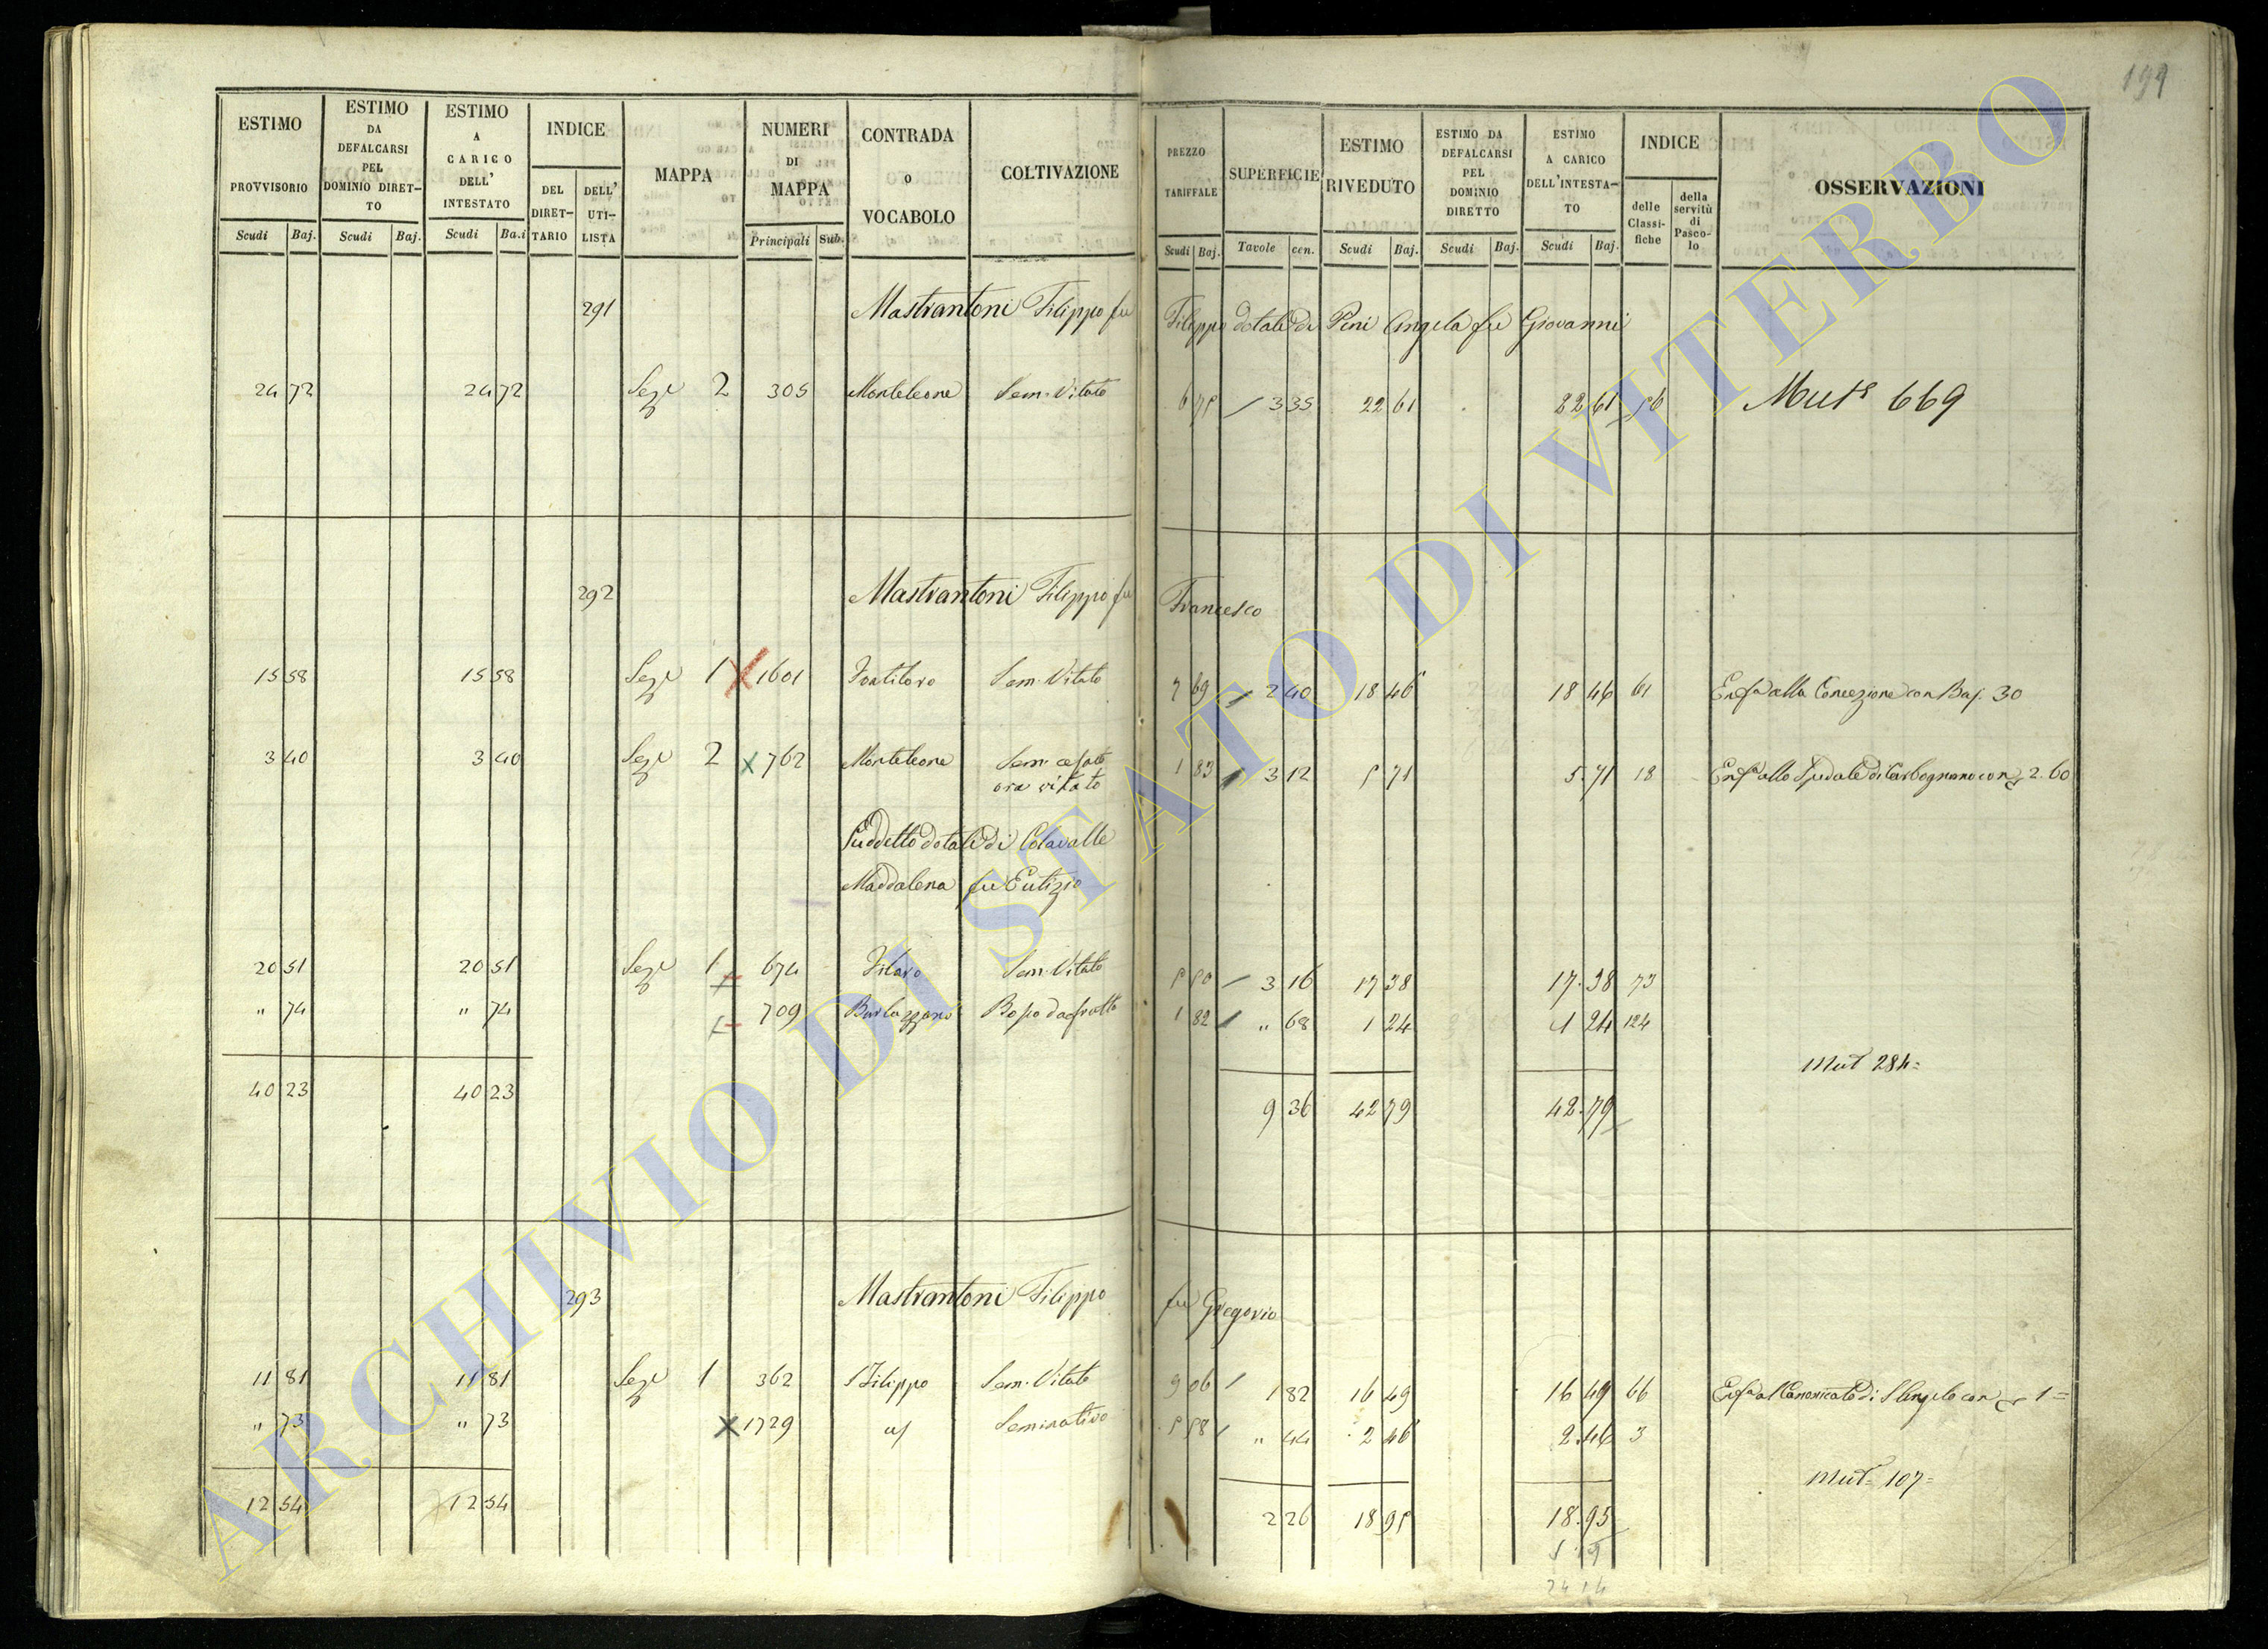 199
ESTIMO PROVVISORIO Scudi Baj.
ESTIMO DA DEFALCARSI PEL DOMINIO DIRETTO Scudi Baj.
ESTIMO A CARICO DELL' INTESTATO Scudi Ba.i
INDICE DEL DIRETTARIO DELL' UTILISTA
MAPPA
NUMERI DI MAPPA Principali Sub.
CONTRADA O VOCABOLO
COLTIVAZIONE
PREZZO TARIFFALE Scudi Baj.
SUPERFICIE Tavole cen.
ESTIMO RIVEDUTO Scudi Baj.
ESTIMO DA DEFALCARSI PEL DOMINIO DIRETTO Scudi Baj.
ESTIMO A CARICO DELL'INTESTATO Scudi Baj.
INDICE delle Classifiche della servitù di Pascolo
OSSERVAZIONI
291 Mastrantoni Filippo fu Filippo dotale di Pini Angela fu Giovanni
24 72 24 72 Sez.e 2 305 Monteleone Sem. Vitato 6 75 3 35 22 61 22 61 56 Mut.e 669
292 Mastrantoni Filippo fu Francesco
15 58 15 58 Sez.e 1 1601 Sem. Vitato 7 69 2 40 18 46 18 46 61 Enf.a alla Concezione con Baj. 30
3 40 3 40 Sez.e 2 762 Monteleone Sem. cesato 1 83 3 12 5 71 5.71 18 Enf.a allo Spedale di Carbognano con 2.60
ora vitato
Suddetto dotale di Colavalle
Maddalena fu Eutizio
20 51 20 51 Sez.e 1 674 Filaro Sem. Vitato 5 50 3 16 17 38 17.38 73
" 74 " 74 709 Barlozzano Bosco da frutto 1 82 " 68 1 24 1 24 124
Mut 284=
40 23 40 23 9 36 42 79 42.79
293 Mastrantoni Filippo fu Gregorio
11 81 11 81 Sez.e 1 362 S Filippo Sem. Vitato 9 06 1 82 16 49 16 49 66 Enf.a al Canonicato di S Angelo con 1=
" 73 " 73 1729 Seminativo 5 58 " 44 2 46 2.46 3
Mut= 107=
12 54 12 54 2 26 18 95 18.95
5 19
24 14
ARCHIVIO DI STATO DI VITERBO